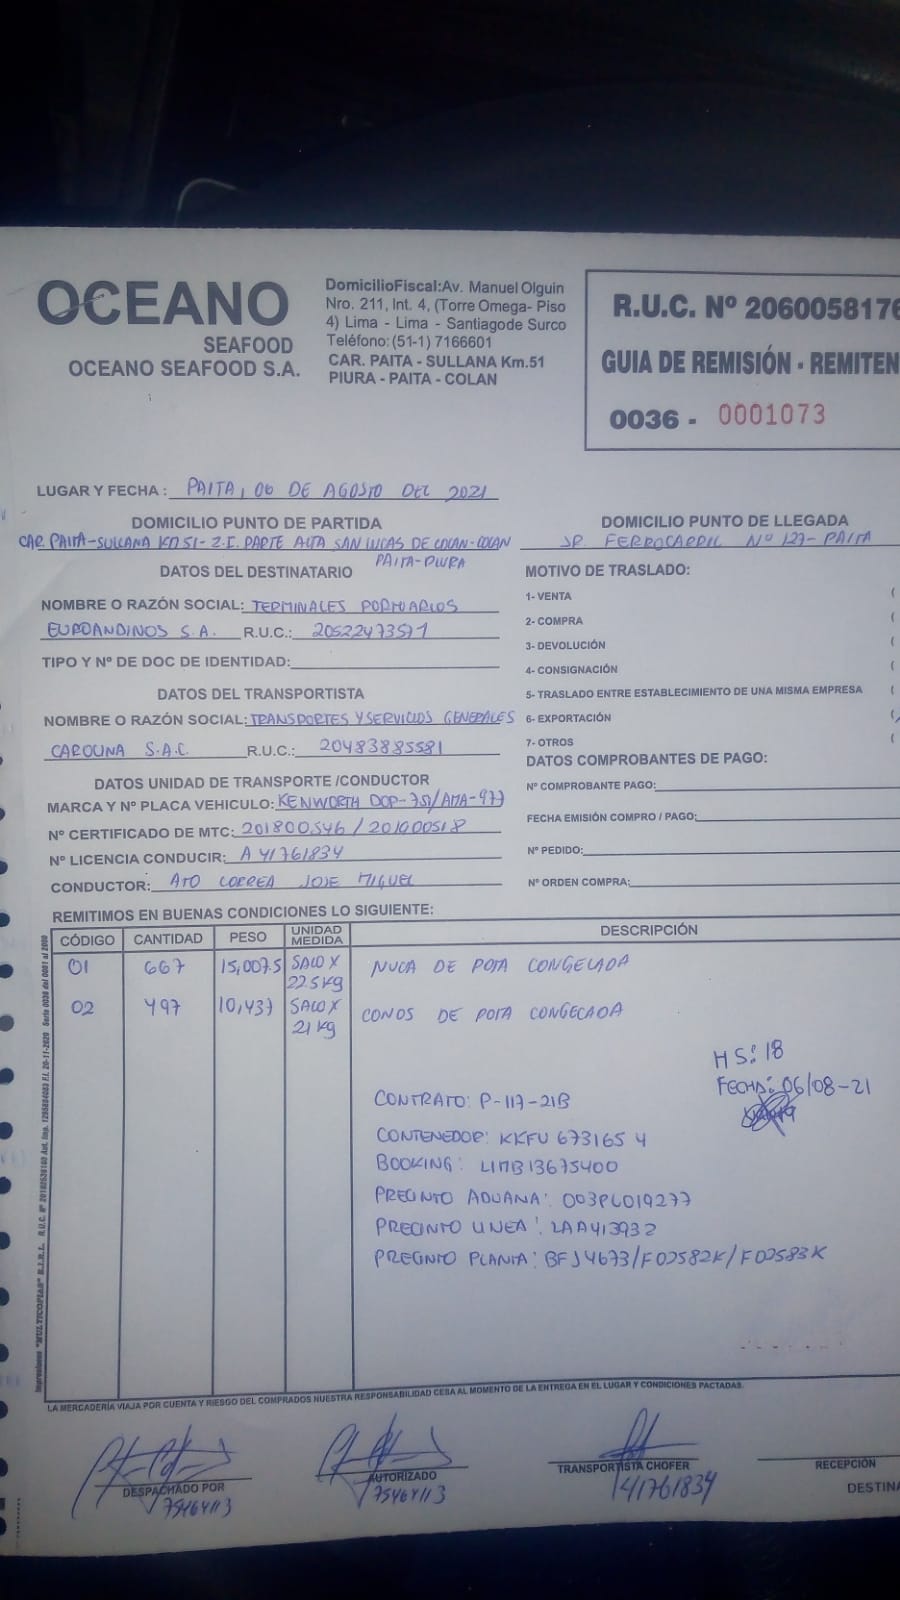 OCEANO
SEAFOOD
OCEANO SEAFOOD S.A.
DomicilioFiscal:Av. Manuel Olguin
Nro. 211, Int. 4, (Torre Omega- Piso
4) Lima - Lima - Santiagode Surco
Teléfono:(51-1) 7166601
CAR. PAITA - SULLANA Km.51
PIURA - PAITA - COLAN
R.U.C. Nº 2060058176
GUIA DE REMISIÓN - REMITEN
0036 - 0001073
LUGAR Y FECHA : PAITA, 06 DE AGOSTO DEL 2021
DOMICILIO PUNTO DE PARTIDA
CAR. PAITA-SULLANA KM 51-Z.I. PARTE ALTA SAN LUCAS DE COLAN-COLAN
PAITA-PIURA
DOMICILIO PUNTO DE LLEGADA
JR. FERROCARRIL Nº 127-PAITA
DATOS DEL DESTINATARIO
NOMBRE O RAZÓN SOCIAL: TERMINALES PORTUARIOS
EUROANDINOS S.A. R.U.C.: 20522473571
TIPO Y Nº DE DOC DE IDENTIDAD:
DATOS DEL TRANSPORTISTA
NOMBRE O RAZÓN SOCIAL: TRANSPORTES Y SERVICIOS GENERALES
CAROLINA S.A.C. R.U.C.: 20483885581
DATOS UNIDAD DE TRANSPORTE /CONDUCTOR
MARCA Y Nº PLACA VEHICULO: KENWORTH DOP-751/AMA-977
Nº CERTIFICADO DE MTC: 201800546 / 201000518
Nº LICENCIA CONDUCIR: A 41761834
CONDUCTOR: ATO CORREA JOSE MIGUEL
MOTIVO DE TRASLADO:
1- VENTA (
2- COMPRA (
3- DEVOLUCIÓN (
4- CONSIGNACIÓN (
5- TRASLADO ENTRE ESTABLECIMIENTO DE UNA MISMA EMPRESA (
6- EXPORTACIÓN (
7- OTROS (
DATOS COMPROBANTES DE PAGO:
Nº COMPROBANTE PAGO:
FECHA EMISIÓN COMPRO / PAGO:
Nº PEDIDO:
Nº ORDEN COMPRA:
REMITIMOS EN BUENAS CONDICIONES LO SIGUIENTE:
CÓDIGO CANTIDAD PESO UNIDAD MEDIDA DESCRIPCIÓN
01 667 15,007.5 SACO X 22.5 Kg NUCA DE POTA CONGELADA
02 497 10,437 SACO X 21 Kg CONOS DE POTA CONGELADA
HS: 18
FECHA: 06/08-21
CONTRATO: P-117-21B
CONTENEDOR: KKFU 673165 4
BOOKING: LIMB13675400
PRECINTO ADUANA: 003PL019277
PRECINTO LINEA: LAA413932
PRECINTO PLANTA: BFJ4673/F02582K/F02583K
Impresiones "MULTICOPIAS" E.I.R.L. R.U.C. Nº
F.I. 20-11-2020 Serie 0036 del 0001 al 2000
LA MERCADERÍA VIAJA POR CUENTA Y RIESGO DEL COMPRADOS NUESTRA RESPONSABILIDAD CESA AL MOMENTO DE LA ENTREGA EN EL LUGAR Y CONDICIONES PACTADAS.
DESPACHADO POR
75464113
AUTORIZADO
75464113
TRANSPORTISTA CHOFER
41761834
RECEPCIÓN
DESTINA